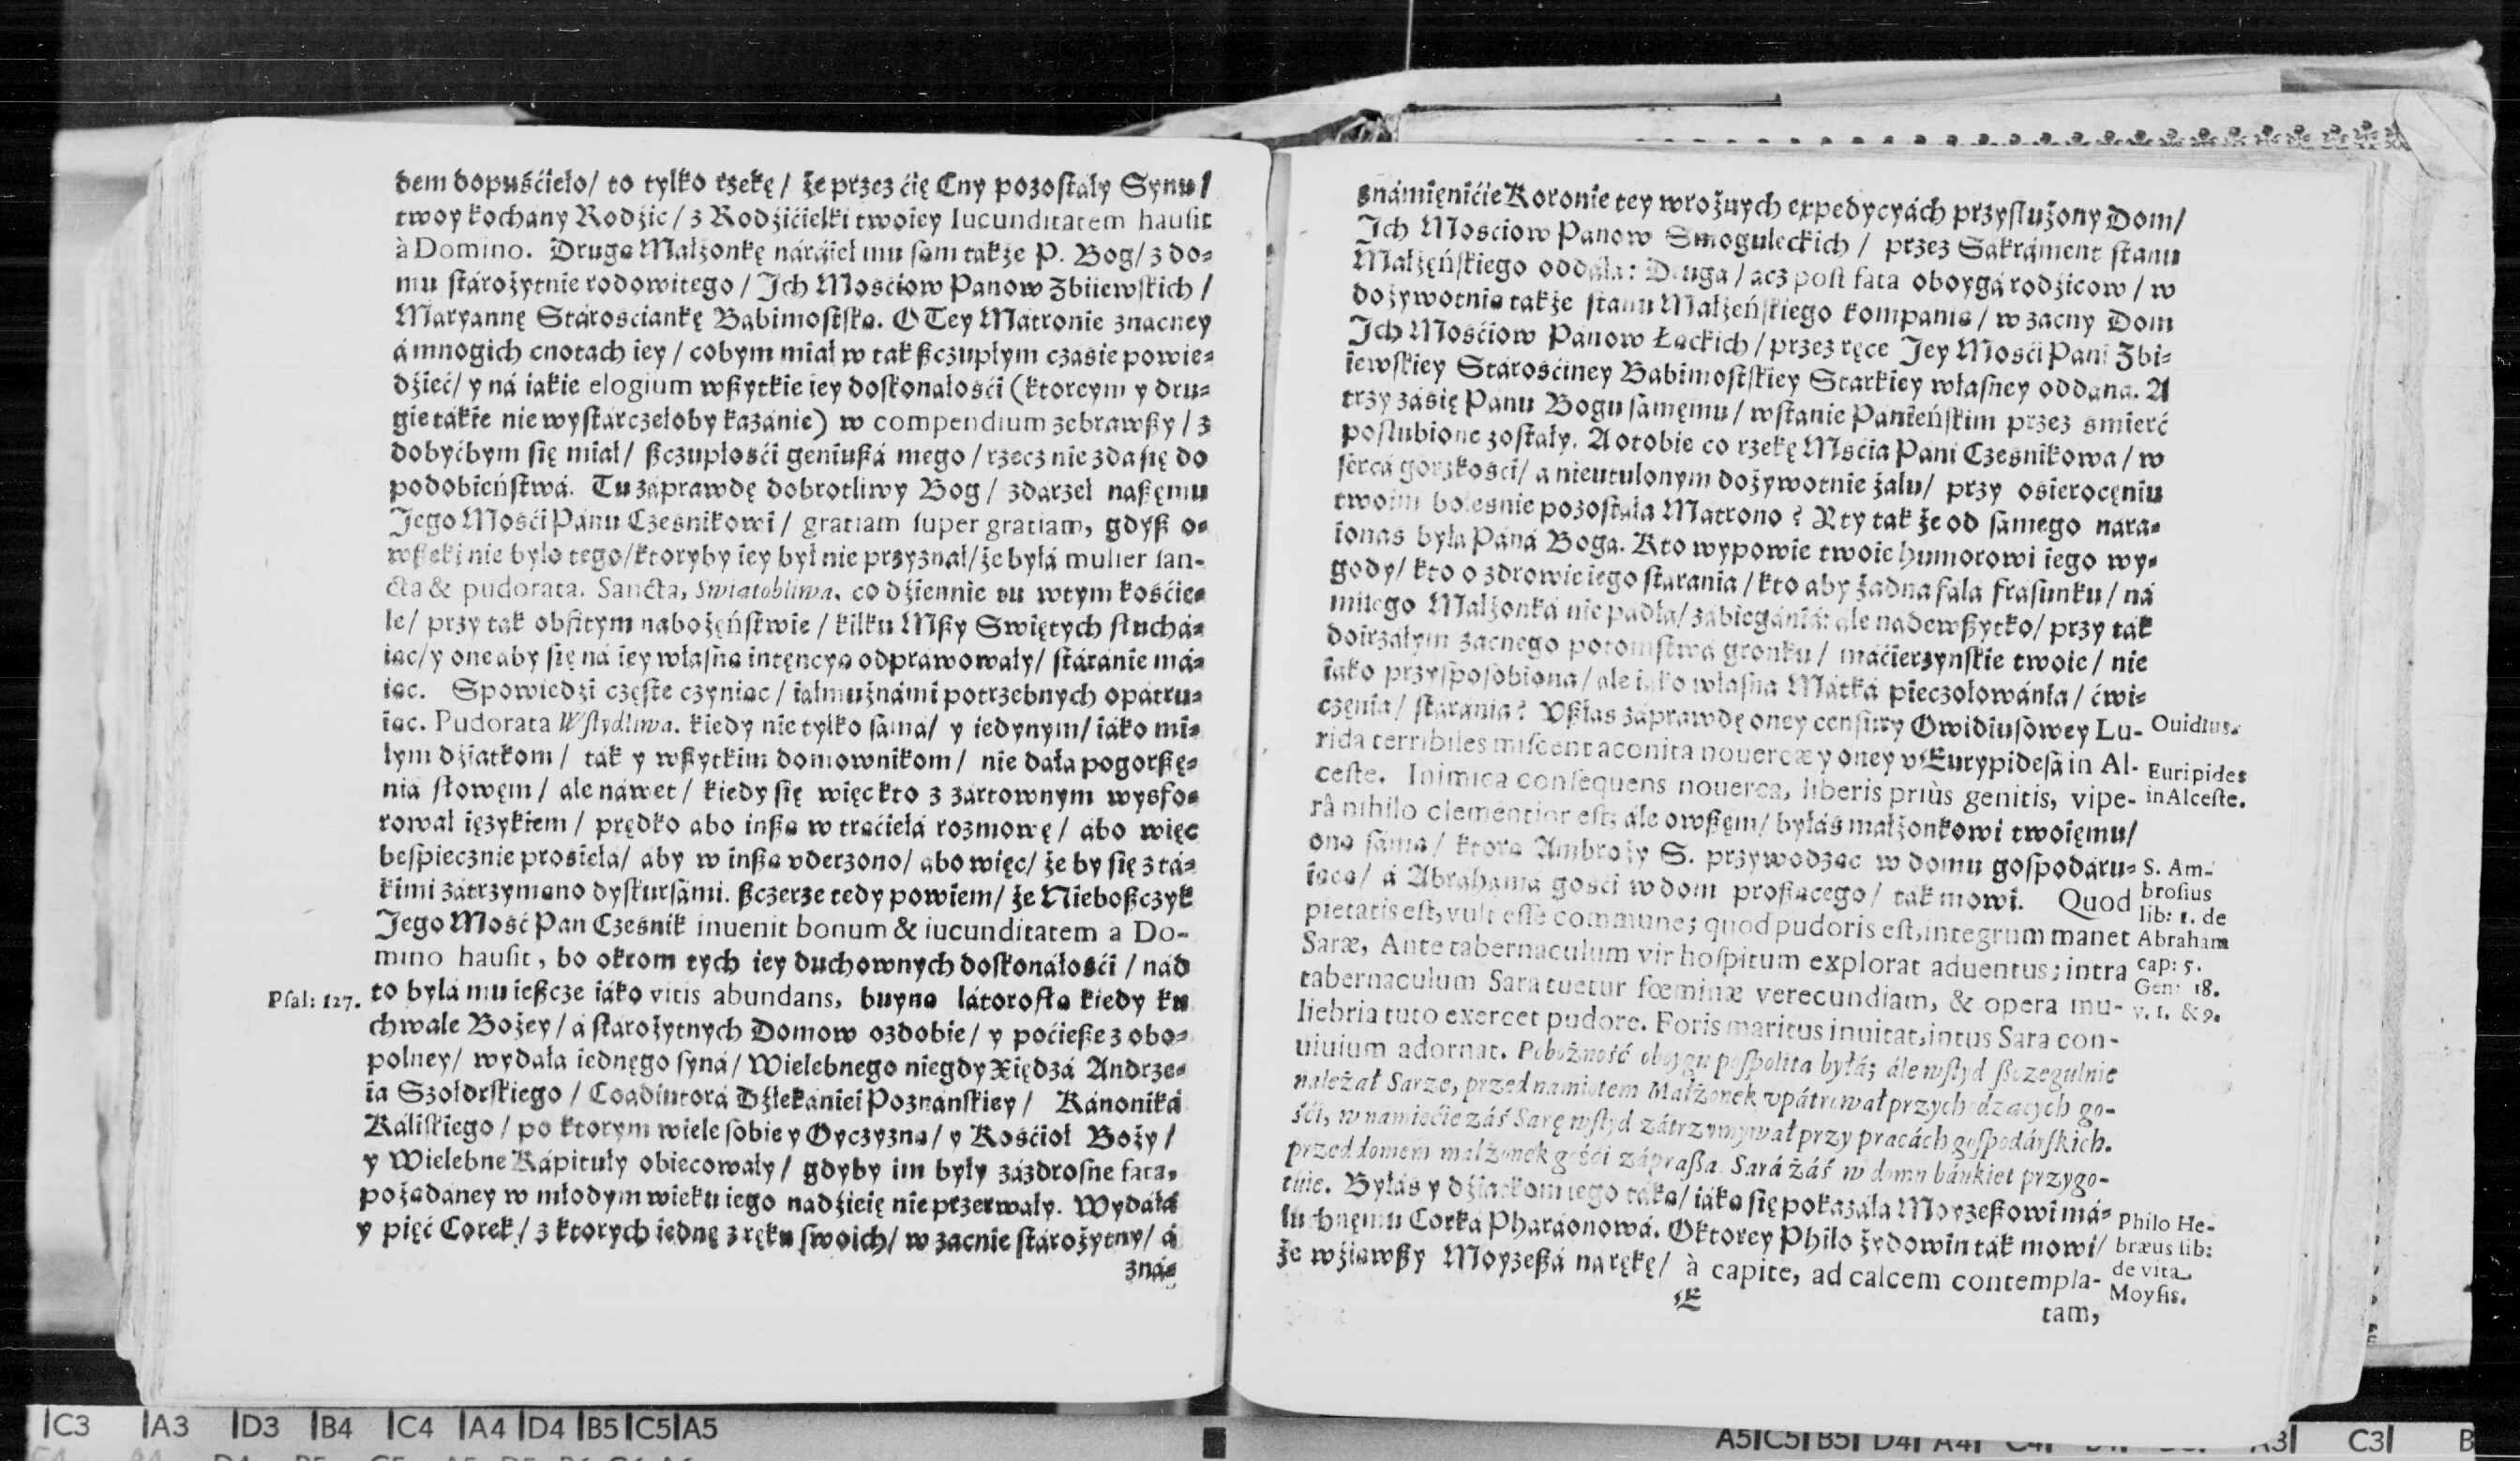 dem dopuśćieło/ to tylko rzekę/ że przez ćię Cny pozostały Synu/
twoy kochany Rodźic/ z Rodźićielki twoiey Iucunditatem hausit
à Domino. Drugą Małżonkę náráieł mu sam także P. Bog/ z do-
mu stárożytnie rodowitego/ Ich Mośćiow Panow Zbiiewskich/
Maryannę Stárośćiankę Babimostską. O Tey Mátronie znácney
á mnogich cnotach iey/ cobym miał w tak szczupłym czáśie powie-
dźieć/ y ná iakie elogium wszytkie iey doskonałośći (ktorcym y dru-
gie tákie nie wystárczełoby kazánie) w compendium zebrawszy/ z
dobyćbym się miał/ szczupłośći geniuszá mego/ rzecz nie zda się do
podobieństwá. Tu záprawdę dobrotliwy Bog/ zdarzeł nászęmu
Jego Mośći Pánu Czesnikowi/ gratiam super gratiam, gdysz o-
wszeki nie było tego/ ktoryby iey był nie przyznał/ że byłá mulier san-
cta & pudorata. Sancta, Swiątobliwa. co dźiennie tu w tym kośćie-
le/ przy tak obfitym nabożęństwie/ kilku Mszy Swiętych słuchá-
iąc/ y one aby się ná iey własną intęncyą odprawowały/ stáránie má-
iąc. Spowiedźi częste czyniąc/ iałmużnámi potrzebnych opátru-
iąc. Pudorata Wstydliwa. kiedy nie tylko sámá/ y iedynym/ iáko mi-
łym dźiatkom/ ták y wszytkim domownikom/ nie dáła pogorszę-
nia słowęm/ ale náwet/ kiedy się więc kto z żártownym wysfo-
rował ięzykiem/ prędko abo inszą wtrąćieła rozmowę/ abo więc
bespiecznie prosieła/ aby w inszą vderzono/ abo więc/ że by się z tá-
kimi zátrzymano dyskursámi. szczerze tedy powiem/ że Nieboszczyk
Jego Mość Pan Cześnik inuenit bonum & iucunditatem a Do-
mino hausit, bo okrom tych iey duchownych doskonáłośći/ nád
to byłá mu ieszcze iáko vitis abundans, buyną látoroslą kiedy ku
Psal: 127.
chwale Bożey/ á starożytnych Domow ozdobie/ y poćiesze z obo-
polney/ wydała iednęgo syná/ Wielebnego niegdy Xiędzá Andrze-
ia Szołdrskiego/ Coadiutorá Dźiekániei Poznánskiey/ Kánoniká
Káliskiego/ po ktorym wiele sobie y Oyczyzná/ y Kośćioł Boży/
y Wielebne Kápituły obiecowały/ gdyby im były zázdrosne fata,
pożądáney w młodym wieku iego nadźieię nie przerwáły. Wydáłá
y pięć Corek/ z ktorych iednę z ręku swoich/ w zacnie stárożytny/ á
zná-
známięnićie Koronie tey w rożnych expedycyách przysłużony Dom/
Ich Mościow Panow Smoguleckich/ przez Sákráment stanu
Małżęńskiego oddáła: Druga/ acz post fata oboygá rodźicow/ w
dożywotnią także stanu Małżeńskiego kompanią/ w zacny Dom
Ich Mośćiow Pánow Łąckich/ przez ręce Jey Mośći Páni Zbi-
iewskiey Stárośćiney Babimostskiey Starkiey własney oddána. A
trzy záśię Pánu Bogu sámęmu/ w stanie Pánieńskim przez śmierć
poślubione zostáły. A o tobie co rzekę Mśćia Pani Czesnikowa/ w
sercá gorzkośći/ a nieutulonym dożywotnie żalu/ przy osierocęniu
twoim boleśnie pozostáła Matrono? Y ty tak że od sámego nára-
ionaś byłá Páná Bogá. Kto wypowie twoie humorowi iego wy-
gody/ kto o zdrowie iego stárania/ kto aby żadna fala frásunku/ ná
miłego Małżonká nie padła/ zábiegániá: ale nadewszytko/ przy ták
doirzáłym zacnego potomstwá gronku/ máćierzynskie twoie/ nie
iáko przysposobiona/ ale iáko własna Mátká pieczołowánia/ ćwi-
częnia/ stárania? Vszłáś záprawdę oney censury Owidiusowey Lu-
rida terribiles miscent aconita nouercæ y oney v Eurypidesá in Al-
ceste. Inimica consequens nouerca, liberis priùs genitis, vipe-
râ nihilo clementior est; ále owszęm/ byłáś małżonkowi twoięmu/
oną sámą/ ktorą Ambroży S. przywodząc w domu gospodáru-
iącą/ á Abráhámá gośći w dom proszącego/ tak mowi. Quod
pietatis est, vult esse commune; quod pudoris est, integrum manet
Saræ, Ante tabernaculum vir hospitum explorat aduentus; intra
tabernaculum Sara tuetur fœminæ verecundiam, & opera mu-
liebria tuto exercet pudore. Foris maritus inuitat, intus Sara con-
uiuium adornat. Pobożność oboygu pospolita byłá; ále wstyd szczegulnie
należał Sarze, przed namiotem Małżonek vpátrował przychodzących go-
śći, w namiećie záś Sarę wstyd zátrzymywał przy pracách gospodárskich.
przed domem małżonek gośći záprasza. Sará záś w domu bánkiet przygo-
tuie. Byłáś y dźiatkom iego táką/ iáką się pokazáłá Moyzeszowi má-
luchnęmu Corká Pharáonowá. O ktorey Philo żydowin ták mowi/
że wźiąwszy Moyzeszá na rękę/ à capite, ad calcem contempla-
E
tam,
Ouidius.
Euripides
in Alceste.
S. Am-
brosius
lib: 1. de
Abraham
cap: 5.
Gen: 18.
v. 1. & 9.
Philo He-
bræus lib:
de vita
Moysis.
C3 A3 D3 B4 C4 A4 D4 B5 C5 A5
A5 C5 B5 D4 A4 C4 A3 C3